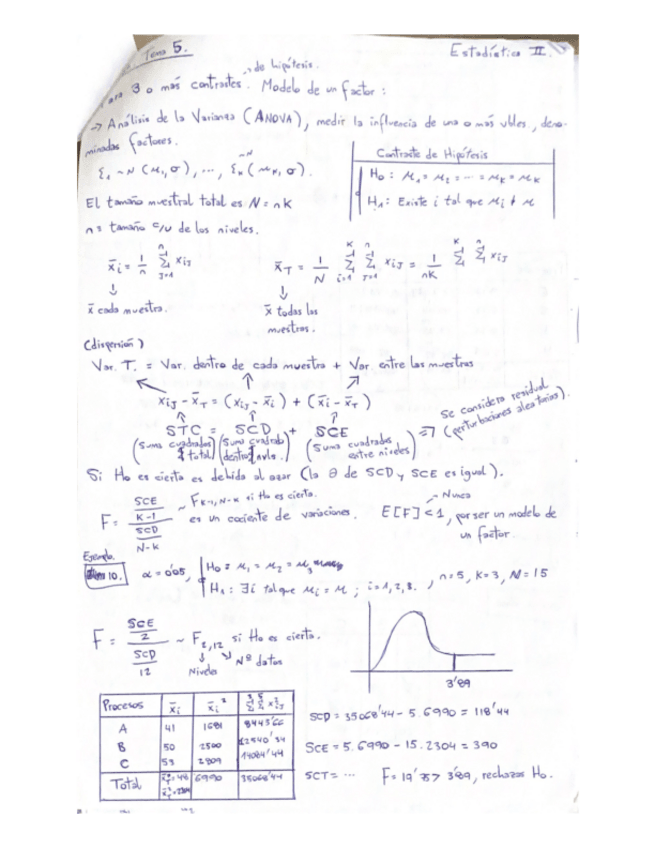 Tema 5.
Estadística II.
de hipótesis.
para 3 o más contrastes. Modelo de un factor:
→ Análisis de la Varianza (ANOVA), medir la influencia de una o más vbles, deno-
minadas factores.
ξ₁ ~ N(μ₁, σ), ..., ξκ ~ N(μκ, σ).
Contraste de Hipótesis
H₀: μ₁ = μ₂ = ... = μκ = μκ
H₁: Existe i tal que μi ≠ μ
El tamaño muestral total es N = nK
n = tamaño c/u de los niveles.
x̄i = 1/n Σ(j=1, n) xij
x̄T = 1/N Σ(i=1, K) Σ(j=1, n) xij = 1/nK Σ(K) Σ(n) xij
↓ ↓
x̄ cada muestra.
x̄ todas las
muestras.
(dispersión)
Var. T. = Var. dentro de cada muestra + Var entre las muestras
xij - x̄T = (xij - x̄i) + (x̄i - x̄T)
STC = SCD + SCE
(Suma cuadrados total) (Suma cuadrado dentro nvls.) (Suma cuadrados entre niveles)
⇒ Se considera residual
(perturbaciones aleatorias).
Si H₀ es cierta es debida al azar (la θ de SCD y SCE es igual).
F = (SCE / K-1) / (SCD / N-k) ~ F K-1, N-K si H₀ es cierta.
es un cociente de variaciones.
Nunca
E[F] < 1, por ser un modelo de
un factor.
Ejemplo.
10. α = 0'05, H₀ = μ₁ = μ₂ = μ₃
H₁: ∃i tal que μi = μ ; i = 1, 2, 3. , n = 5, K = 3, N = 15
F = (SCE / 2) / (SCD / 12) ~ F₂,₁₂ si H₀ es cierta.
Niveles Nº datos
3'89
Procesos x̄i x̄i² Σ(3) Σ(5) x²ij
A 41 1681
B 50 2500
C 53 2809 14084'44
Total 6990 35068'44
SCD = 35068'44 - 5.6990 = 118'44
SCE = 5.6990 - 15.2304 = 390
SCT = ... F = 19'75 > 3'89, rechazas H₀.